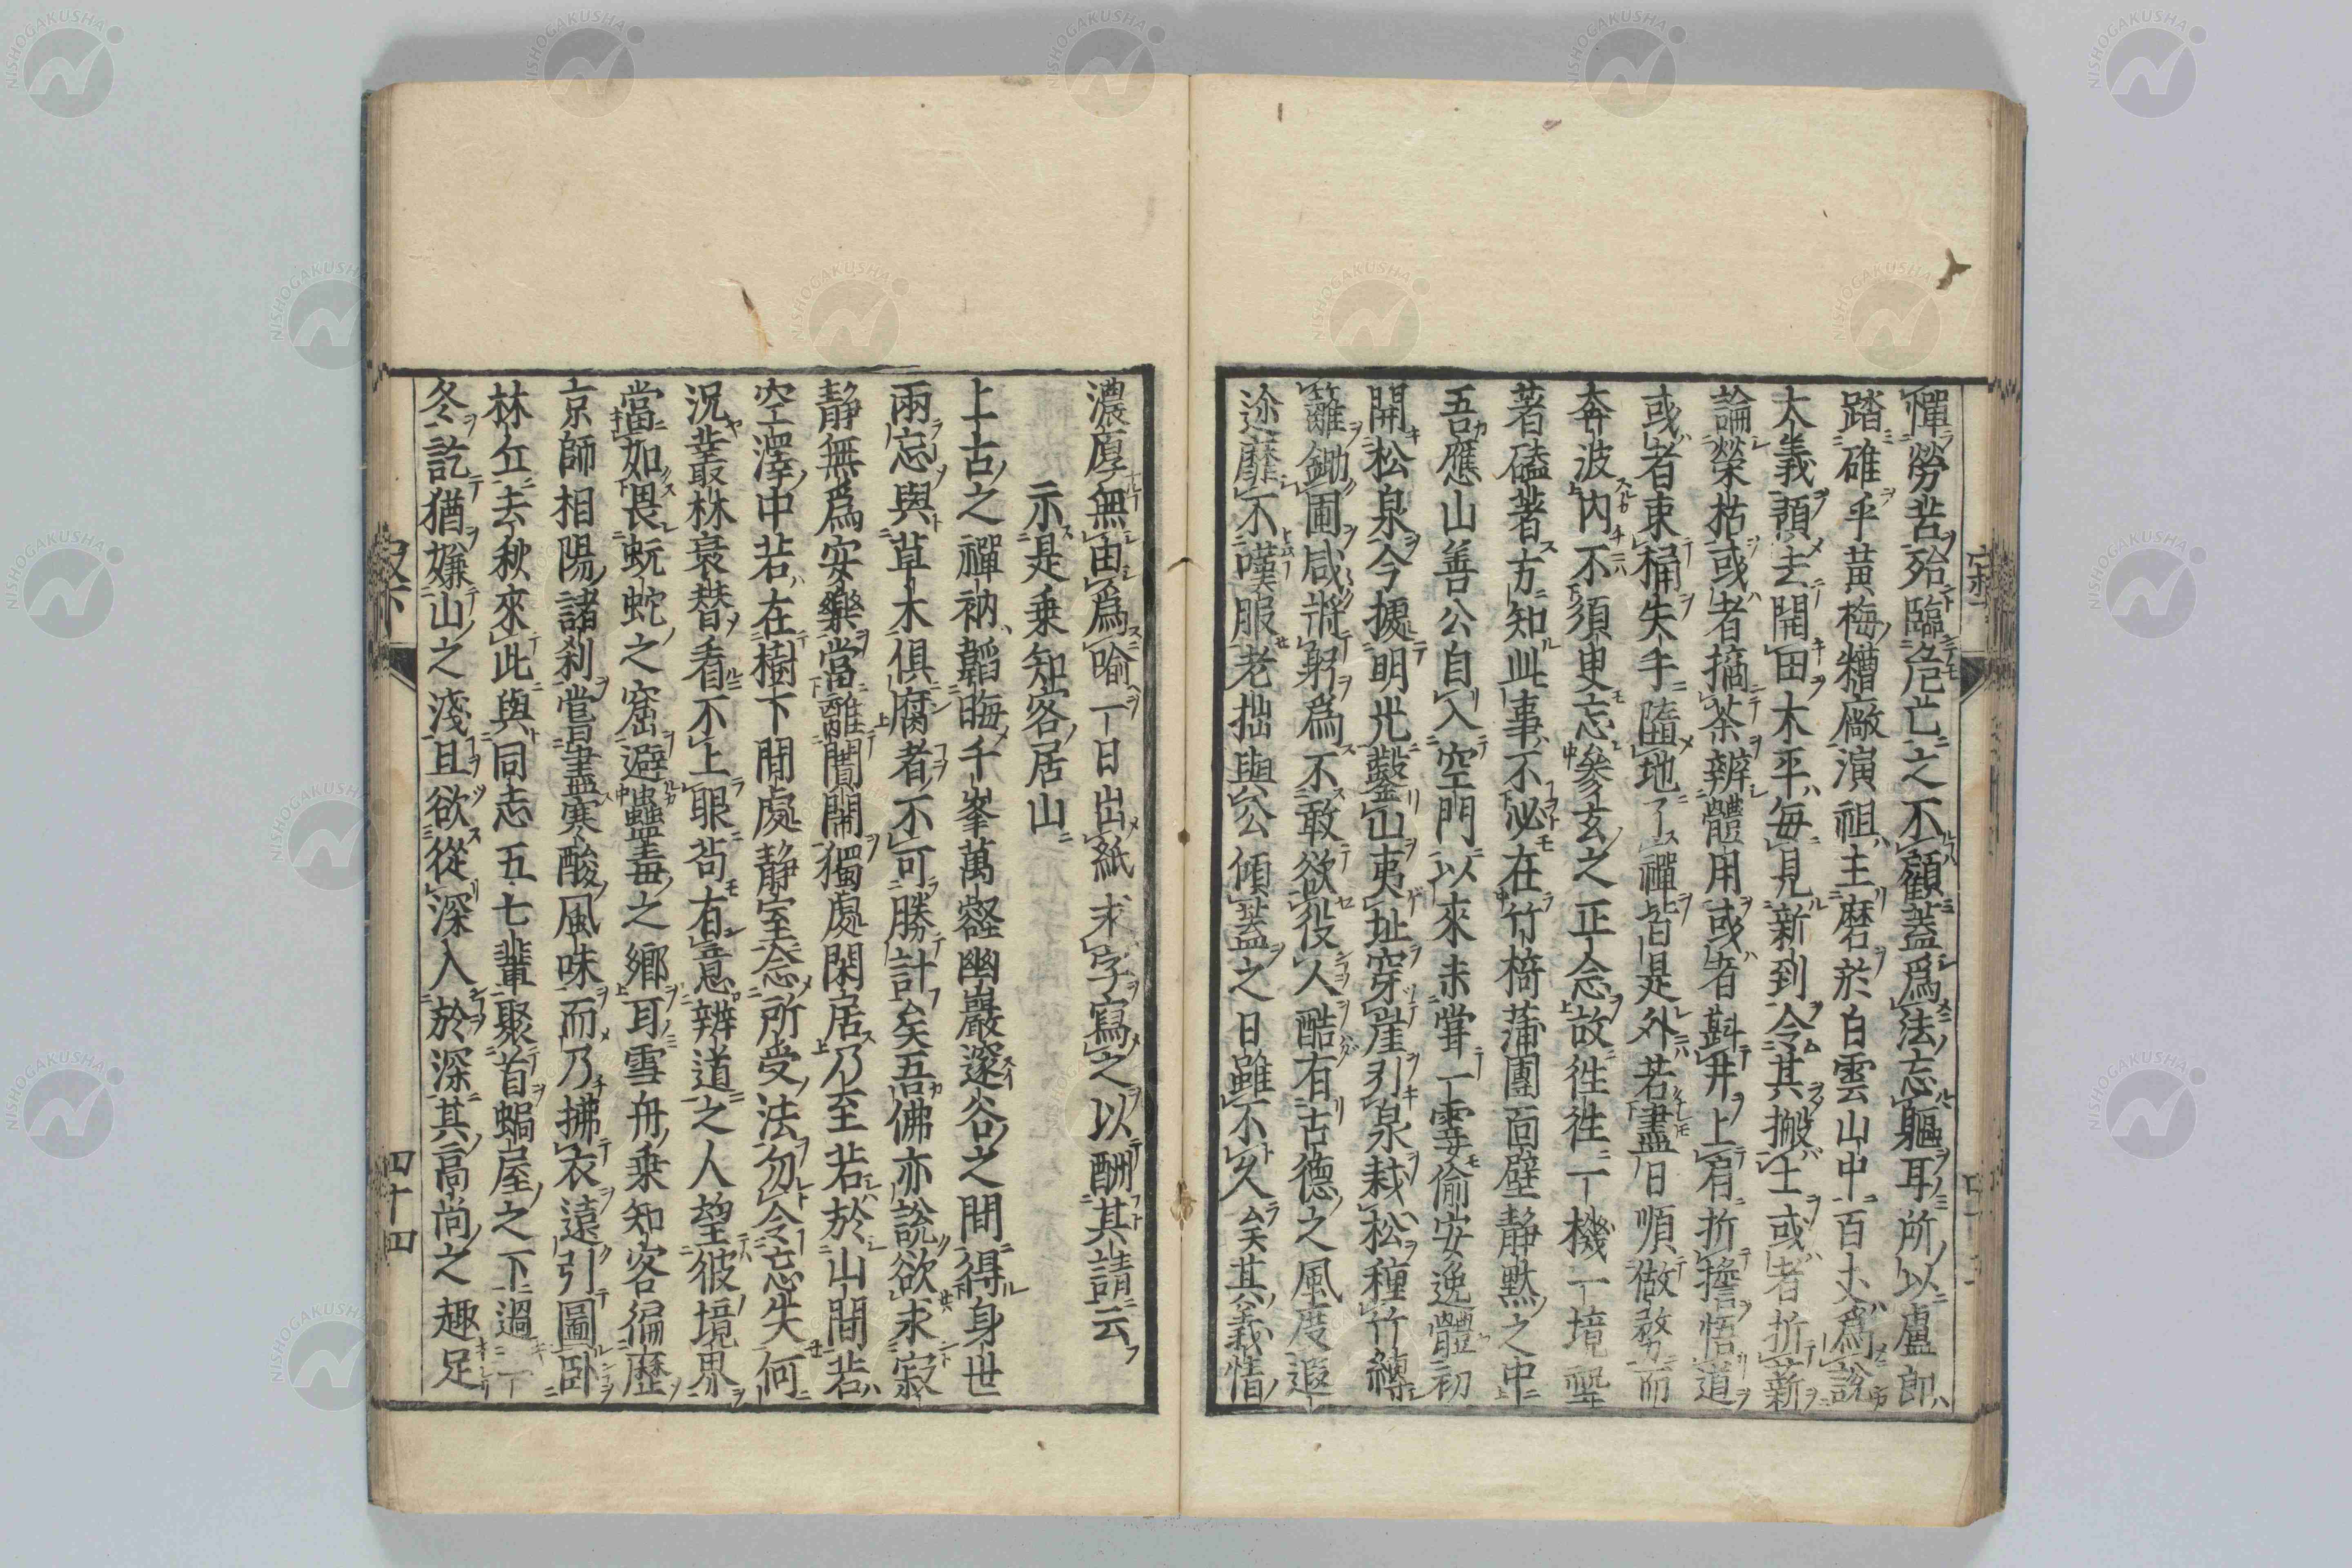 憚勞苦殆臨危亡之不顧蓋爲法忘軀耳所以盧郎
踏碓乎黃梅糟廠演祖主磨於白雲山中百丈爲說
大義領去開田木平每見新到令其搬土或者折薪
論榮枯或者摘茶辨體用或者斟井上有折擔悟道
或者束桶失手隨地了禪皆是外若盡日順做務而
奔波內不須臾忘參玄之正念故徃徃一機一境埾
著磕著方知此事不必在竹椅蒲團面壁靜默之中
吾應山善公自入空門以來未甞一霎偷安逸體初
開松泉今據明光鑿山夷址穿崖引泉栽松種竹縳
籬鋤圃咸將躬爲不敢欲役人酷有古德之風度遐
迩靡不嘆服老拙與公傾蓋之日雖不久矣其義情
濃厚無由爲喻一日出紙求字寫之以酬其請云
示是乘知客居山
上古之禪衲韜晦千峯萬壑幽巖邃谷之間得身世
兩忘與草木俱腐者不可勝計矣吾佛亦說欲求寂
靜無爲安樂當離閙獨處閑居乃至若於山間若
空澤中若在樹下閒處靜室念所受法勿令忘失何
況叢林衰替看不上眼苟有意辨道之人望彼境界
當如畏蚖蛇之窟避蠱毒之鄉耳雪舟乘知客徧歷
京師相陽諸刹嘗盡寒酸風味而乃拂衣遠引圖臥
林丘去秋來此與同志五七輩聚首蝸屋之下過一
冬訖猶嫌山之淺且欲從深入於深其高尚之趣足
四十四